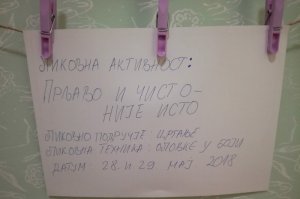 ЛИКОВНА АКТИВНОСТ:
ПРЉАВО И ЧИСТО-
НИЈЕ ИСТО
ЛИКОВНО ПОДРУЧЈЕ: ЦРТАЊЕ
ЛИКОВНА ТЕХНИКА: ОЛОВКЕ У БОЈИ
ДАТУМ: 28. И 29. МАЈ 2018